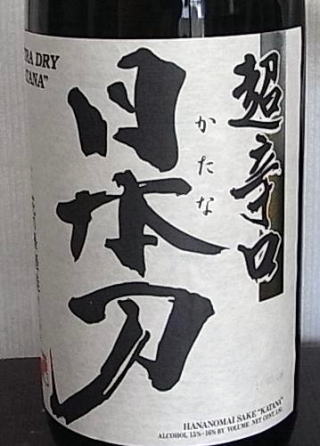 超辛口
かたな
日本刀
RA DRY
TANA"
HANANOMAI SAKE "KATANA"
ALCOHOL 15%-16% BY VOLUME NET CONT.